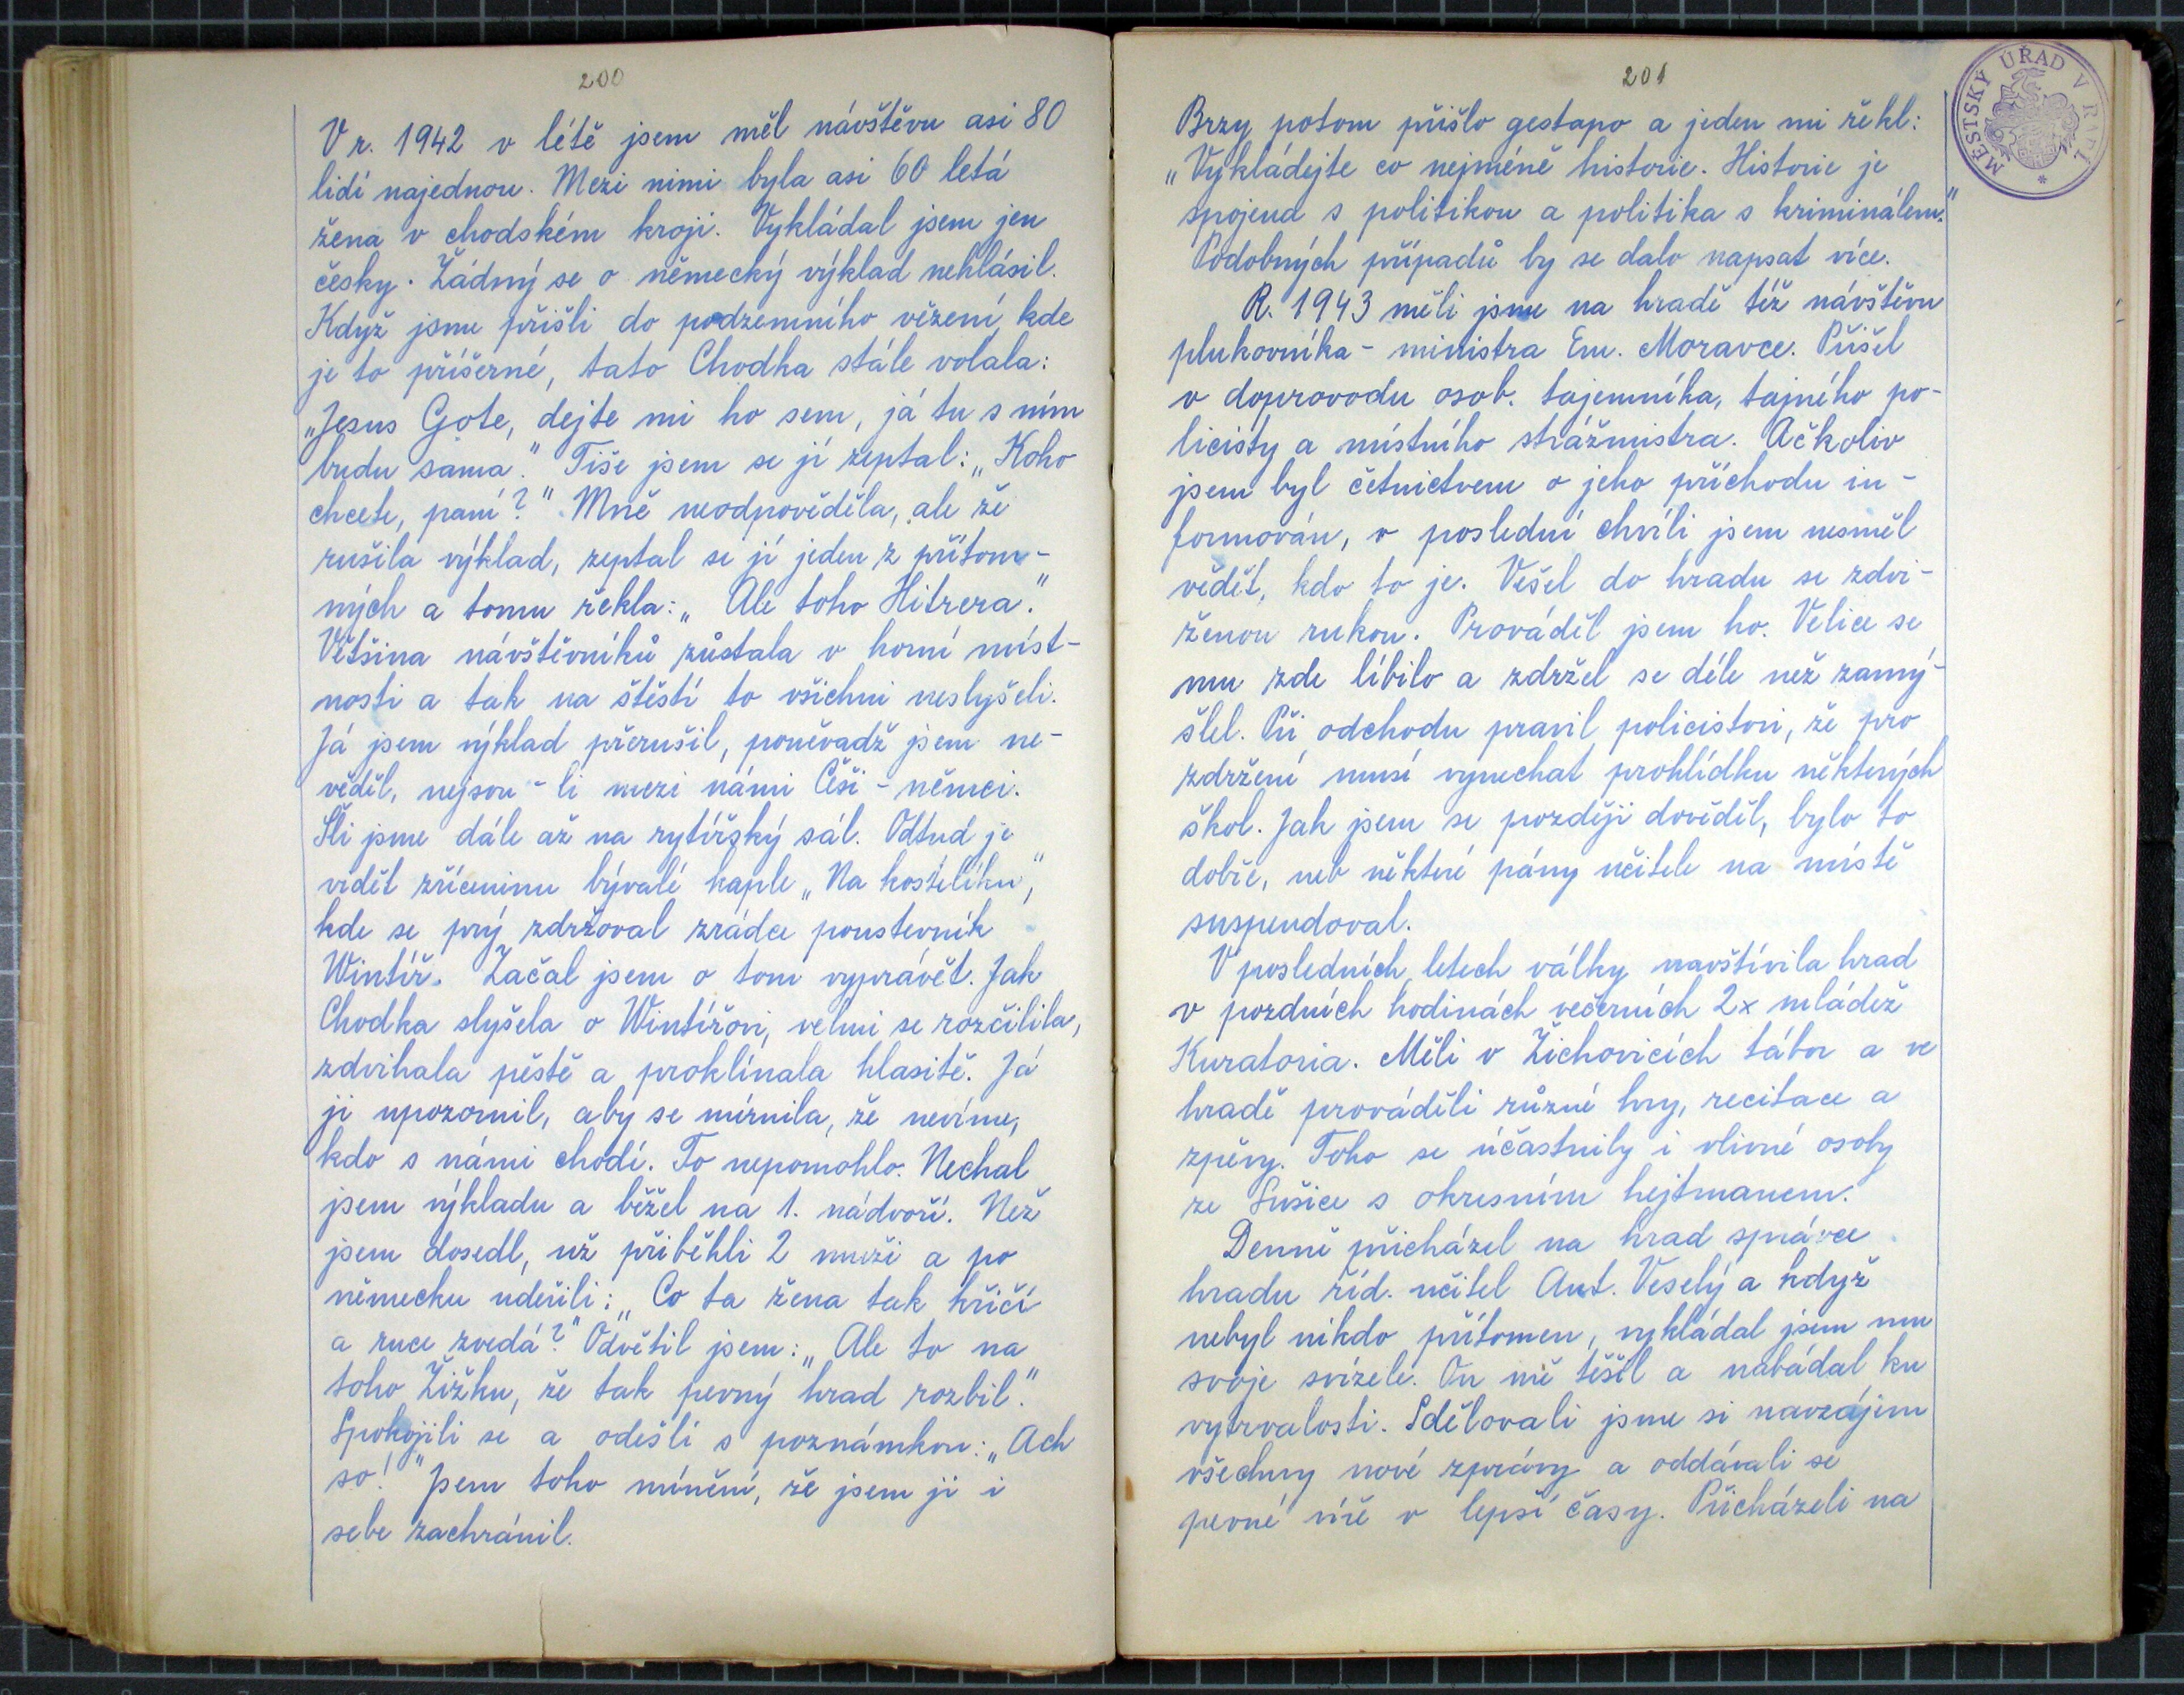 200
V r. 1942 v létě jsem měl návštěvu asi 80
lidí najednou. Mezi nimi byla asi 60 letá
žena v chodském kroji. Vykládal jsem jen
česky. Žádný se o německý výklad nehlásil.
Když jsme přišli do podzemního vězení, kde
je to příšerné, tato Chodka stále volala:
„Jesus Gote, dejte mi ho sem, já tu s ním
budu sama." Tiše jsem se jí zeptal: „Koho
chcete, paní?" Mně neodpověděla, ale že
rušila výklad, zeptal se jí jeden z přítom-
ných a tomu řekla: „Ale toho Hitrera."
Většina návštěvníků zůstala v horní míst-
nosti a tak na štěstí to všichni neslyšeli.
Já jsem výklad přerušil, poněvadž jsem ne-
věděl, nejsou-li mezi námi Češi-němci.
Šli jsme dále až na rytířský sál. Odtud je
vidět zříceninu bývalé kaple „Na kostelíku",
kde se prý zdržoval zrádce poustevník
Wintíř. Začal jsem o tom vyprávět. Jak
Chodka slyšela o Wintířovi, velmi se rozčílila,
zdvihala pěstě a proklínala hlasitě. Já
ji upozornil, aby se mírnila, že nevíme,
kdo s námi chodí. To nepomohlo. Nechal
jsem výkladu a běžel na 1. nádvoří. Než
jsem dosedl, už přiběhli 2 muži a po
německu udeřili: „Co ta žena tak křičí
a ruce zvedá?" Odvětil jsem: „Ale to na
toho Žižku, že tak pevný hrad rozbil."
Spokojili se a odešli s poznámkou: „Ach
so!" Jsem toho mínění, že jsem ji i
sebe zachránil.
201
MĚSTSKÝ ÚŘAD V RABÍ
Brzy potom přišlo gestapo a jeden mi řekl:
„Vykládejte co nejméně historie. Historie je
spojena s politikou a politika s kriminálem."
Podobných případů by se dalo napsat více.
R. 1943 měli jsme na hradě též návštěvu
plukovníka - ministra Em. Moravce. Přišel
v doprovodu osob. tajemníka, tajného po-
licisty a místního strážmistra. Ačkoliv
jsem byl četnictvem o jeho příchodu in-
formován, v poslední chvíli jsem nesměl
vědět, kdo to je. Vešel do hradu se zdvi-
ženou rukou. Prováděl jsem ho. Velice se
mu zde líbilo a zdržel se déle než zamý-
šlel. Při odchodu pravil policistovi, že pro
zdržení musí vynechat prohlídku některých
škol. Jak jsem se později dověděl, bylo to
dobře, neb některé pány učitele na místě
suspendoval.
V posledních letech války navštívila hrad
v pozdních hodinách večerních 2x mládež
Kuratoria. Měli v Žichovicích tábor a ve
hradě prováděli různé hry, recitace a
zpěvy. Toho se účastnily i vlivné osoby
ze Sušice s okresním hejtmanem.
Denně přicházel na hrad správce
hradu říd. učitel Ant. Veselý a když
nebyl nikdo přítomen, vykládal jsem mu
svoje svízele. On mě těšil a nabádal ku
vytrvalosti. Sdělovali jsme si navzájem
všechny nové zprávy a oddávali se
pevné víře v lepší časy. Přicházeli na